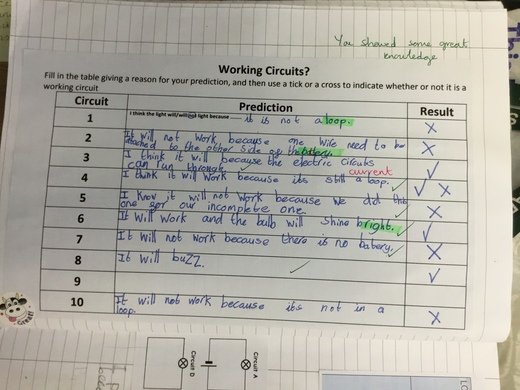 You showed some great
knowledge
Working Circuits?
Fill in the table giving a reason for your prediction, and then use a tick or a cross to indicate whether or not it is a
working circuit
Circuit Prediction Result
1 I think the light will/will not light because it is not a loop. X
2 It will not work because one wire need to be
attached to the other side of the battery. X
3 I think it will because the electric circuts
can run through. current ✓
4 I think it will work because its still a loop. ✓ ✓ X
5 I know it will not work because we did this
one for our incomplete one. X
6 It will work and the bulb will shine bright. ✓ ✓
7 It will not work because there is no batery. ✓ X
8 It will buZZ. ✓ ✓
9
10 It will not work because its not in a
loop. X
Circuit A
Circuit D